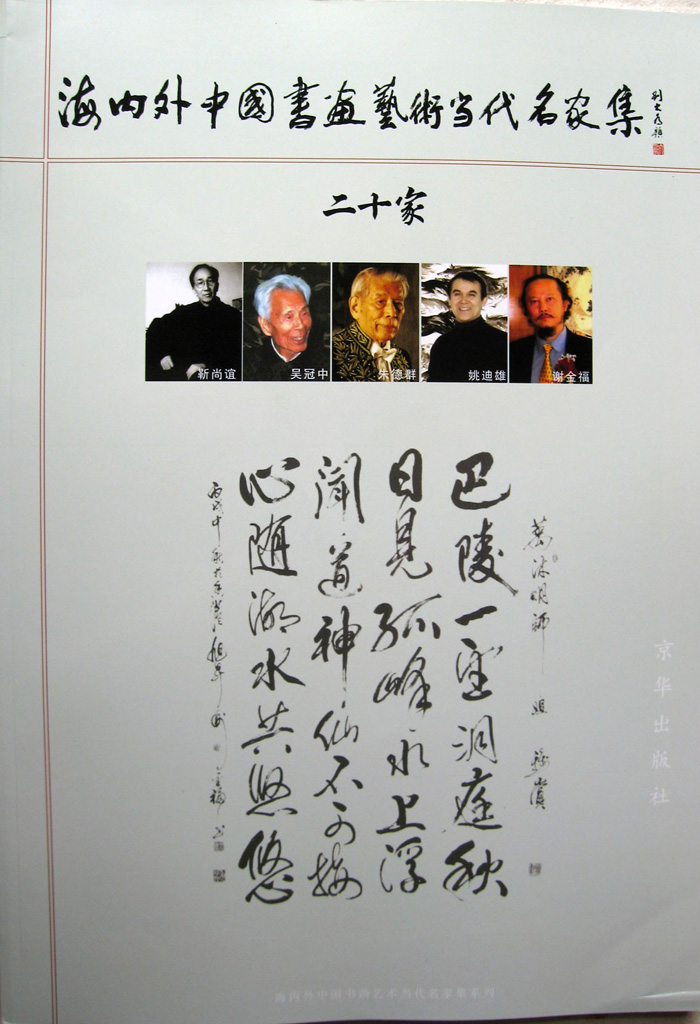 海内外中國書画藝術当代名家集
二十家
靳尚谊 吴冠中 朱德群 姚迪雄 谢金福
巴陵一望洞庭秋
日見孤峰水上浮
闻道神仙不可接
心随湖水共悠悠
京华出版社
海内外中国书画艺术当代名家集系列